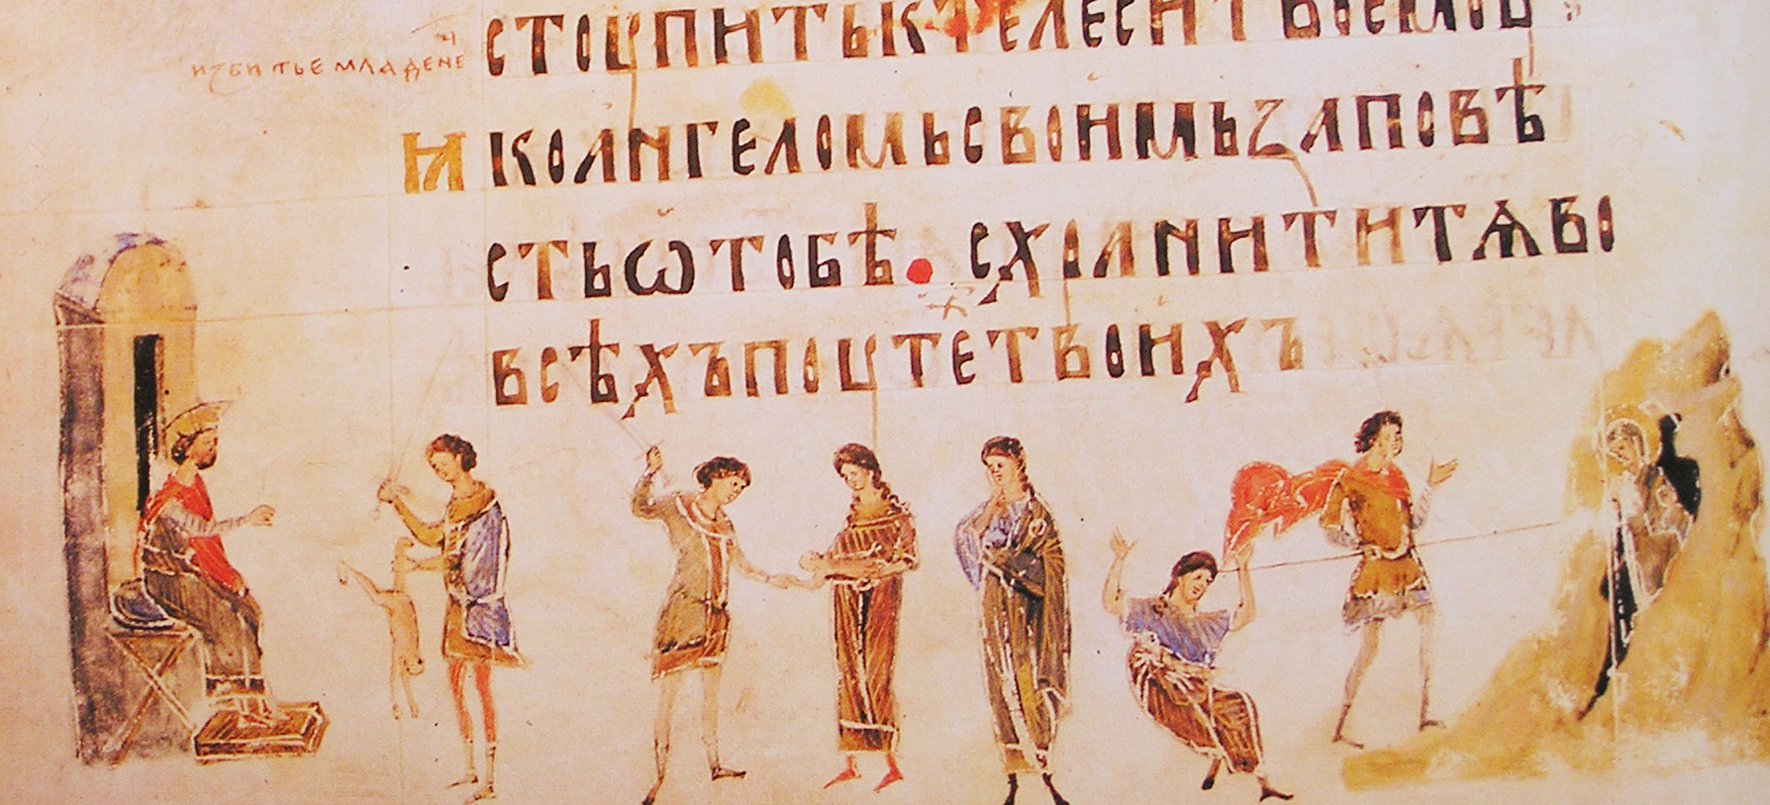 изби тье младене
стоупитьктелеситвоемоу
ꙗ коангеломьсвоимьꙁаповѣ
стьѡтобѣ. схранититѧво
всѣхъпоутеⷯтвоихъ